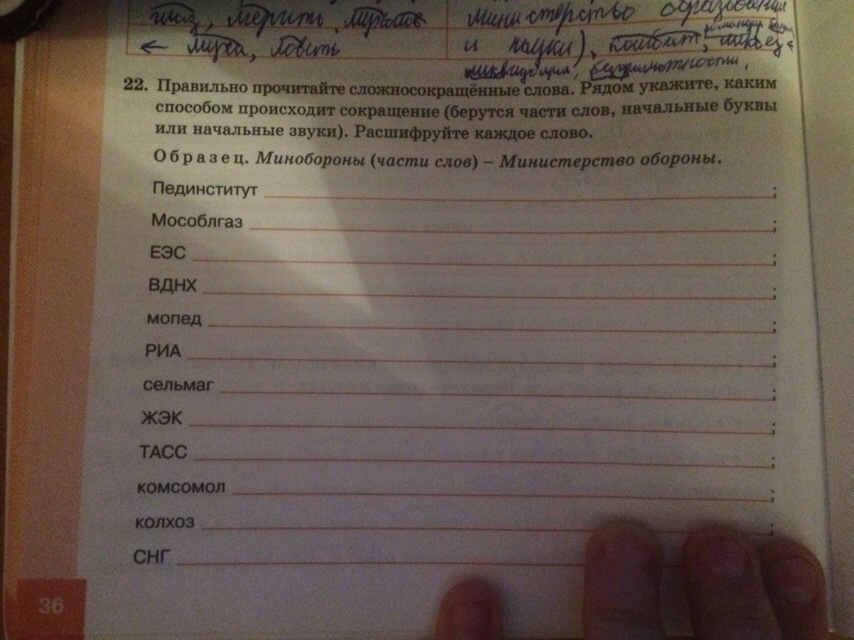 глаз, мерить,
министерство образования
муха, ловить
и науки), комбат,
22. Правильно прочитайте сложносокращённые слова. Рядом укажите, каким
способом происходит сокращение (берутся части слов, начальные буквы
или начальные звуки). Расшифруйте каждое слово.
Образец. Минобороны (части слов) – Министерство обороны.
Пединститут ;
Мособлгаз ;
ЕЭС ;
ВДНХ ;
мопед ;
РИА ;
сельмаг ;
ЖЭК ;
ТАСС ;
комсомол ;
колхоз ;
СНГ
36